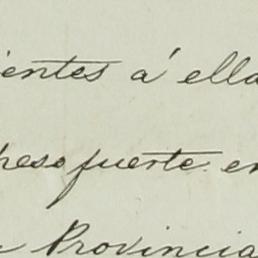 ientes á ella
peso fuerte en
Provincia